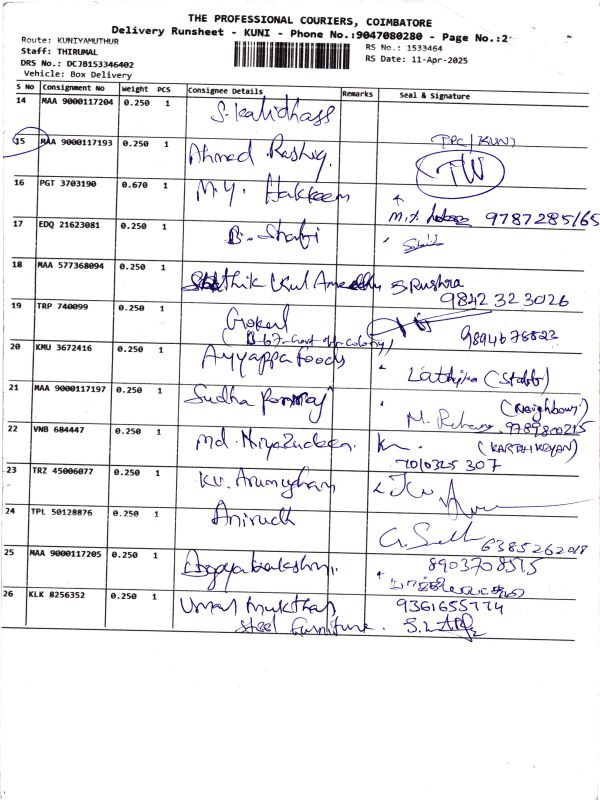 THE PROFESSIONAL COURIERS, COIMBATORE
Delivery Runsheet - KUNI - Phone No.:9047080280 - Page No.:2
Route: KUNIYAMUTHUR
RS No.: 1533464
Staff: THIRUMAL
RS Date: 11-Apr-2025
DRS No.: DCJB153346402
Vehicle: Box Delivery
S No Consignment No Weight PCS Consignee Details Remarks Seal & Signature
14 MAA 9000117204 0.250 1 S. Kalidhass
TPC/KUNI
15 MAA 9000117193 0.250 1 Ahmed Rashiq. TW
16 PGT 3703190 0.670 1 M.Y. Hakkeem
9787285165
17 EDQ 21623081 0.250 1 B. Shafi
18 MAA 577368094 0.250 1
9842323026
19 TRP 740099 0.250 1 Gokul
9894678823
20 KMU 3672416 0.250 1 Ayyappa foods Lathika (Staff)
21 MAA 9000117197 0.250 1 Sudha Ponraj (Neighbour)
9789800215
22 VNB 684447 0.250 1 Md. Niyazudeen. (KARTHIKEYAN)
7010325307
23 TRZ 45006077 0.250 1 KV. Arumugham
24 TPL 50128876 0.250 1 Anirudh
6385262018
25 MAA 9000117205 0.250 1 8903708515
26 KLK 8256352 0.250 1 Umar Mukthar 9361655774
Steel Furniture.